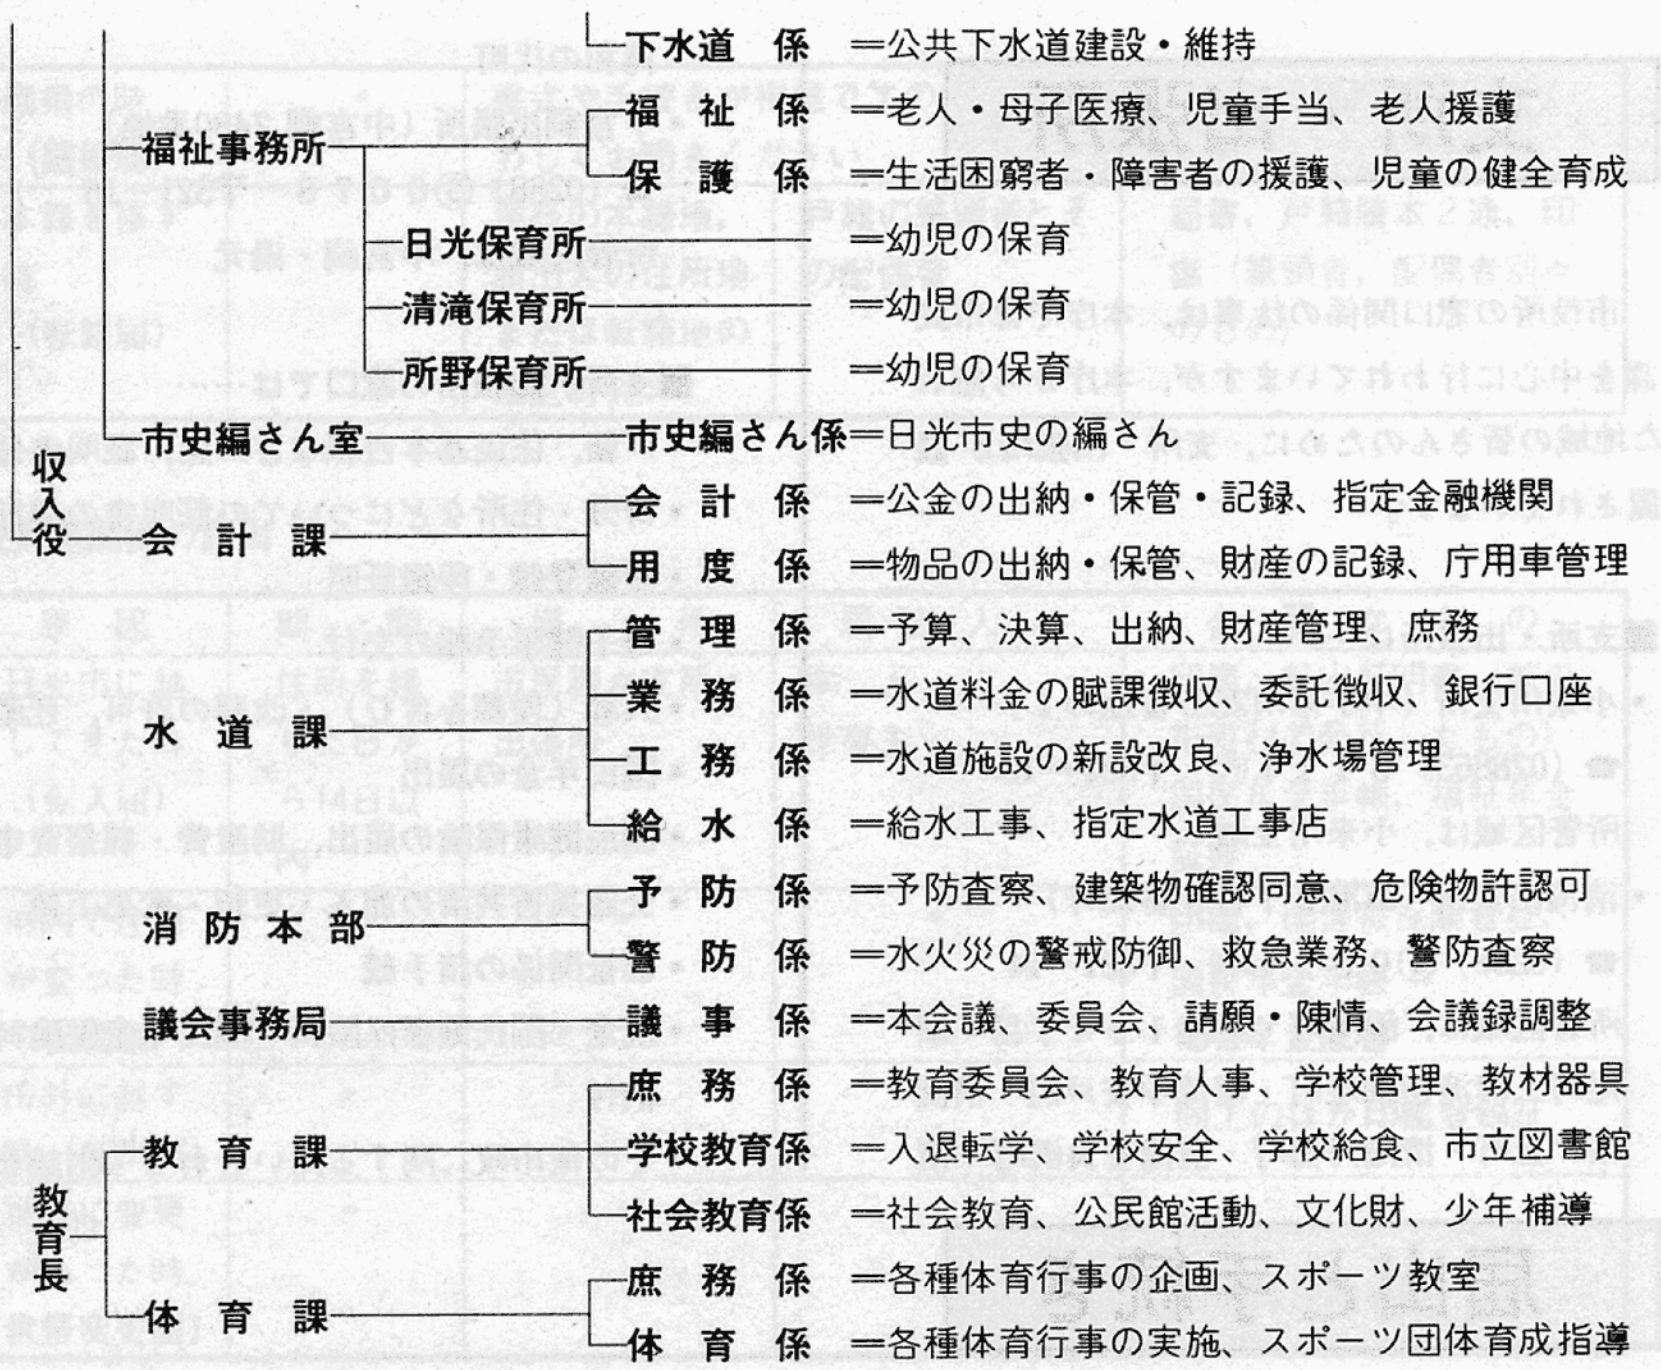 下水道係＝公共下水道建設・維持
福祉係＝老人・母子医療、児童手当、老人援護
福祉事務所
保護係＝生活困窮者・障害者の援護、児童の健全育成
日光保育所＝幼児の保育
清滝保育所＝幼児の保育
所野保育所＝幼児の保育
市史編さん室 市史編さん係＝日光市史の編さん
収入役
会計係＝公金の出納・保管・記録、指定金融機関
会計課
用度係＝物品の出納・保管、財産の記録、庁用車管理
管理係＝予算、決算、出納、財産管理、庶務
業務係＝水道料金の賦課徴収、委託徴収、銀行口座
水道課
工務係＝水道施設の新設改良、浄水場管理
給水係＝給水工事、指定水道工事店
予防係＝予防査察、建築物確認同意、危険物許認可
消防本部
警防係＝水火災の警戒防御、救急業務、警防査察
議会事務局 議事係＝本会議、委員会、請願・陳情、会議録調整
庶務係＝教育委員会、教育人事、学校管理、教材器具
教育課 学校教育係＝入退転学、学校安全、学校給食、市立図書館
教育長
社会教育係＝社会教育、公民館活動、文化財、少年補導
庶務係＝各種体育行事の企画、スポーツ教室
体育課
体育係＝各種体育行事の実施、スポーツ団体育成指導